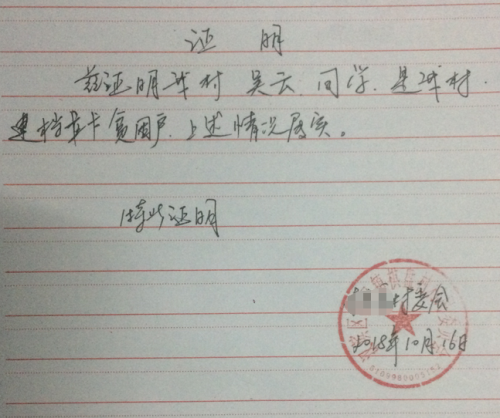 证 明
兹证明我村 吴云 同学,是我村
建档立卡贫困户,上述情况属实。
特此证明
村委会
2018年10月16日